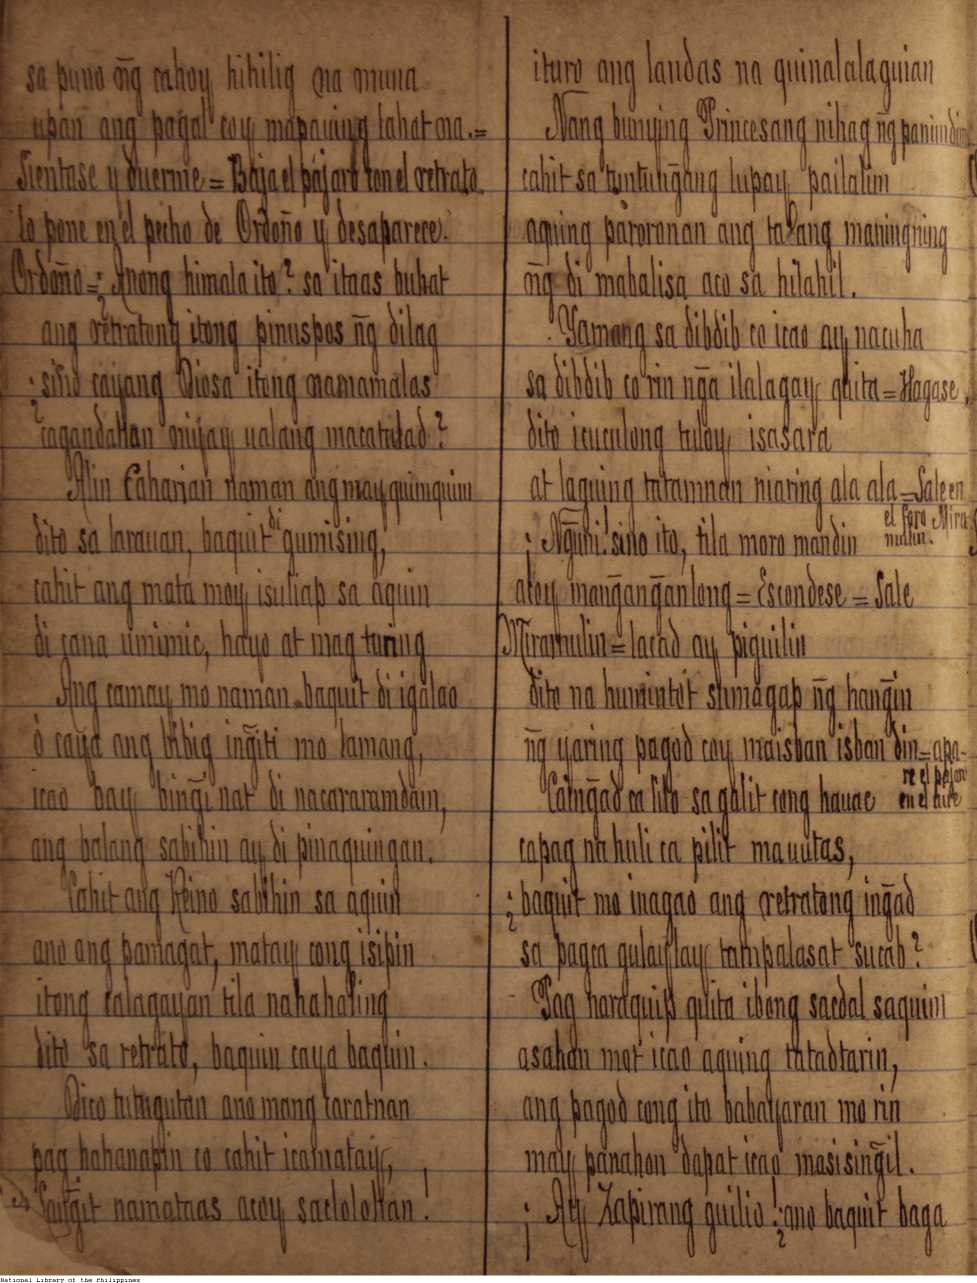 sa puno ñg cahoy hihilig na muna
upan ang pagal coy mapauing lahat na.=
Sientase y duerme = Baja el pájaro con el retrato
lo pone en el pecho de Ordoño y desaparece.
Ordoño = ¿Anong himala ito? sa itaas buhat
ang retratong itong pinuspos ñg dilag
¿sino cayang Diosa itong mamamalas
cagandahan niyay ualang macatulad?
Alin Caharian naman ang may quimquim
dito sa larauan, baquit di gumising,
cahit ang mata moy isuliap sa aquin
di cana umimic, hayo at mag turing
Ang camay mo naman baquit di igalao
ó cayá ang bibig ingiti mo lamang,
icao bay bingi nat di nacararamdam,
ang balang sabihin ay di pinaquingan.
Cahit ang Reino sabihin sa aquin
ano ang pamagat, matay cong isipin
itong calagayan tila nahahaling
dito sa retrato, baquin caya baquin.
Dico tutugutan ano mang caratnan
pag hahanapin co cahit icamatay,
Langit na mataas acoy saclolohan!
ituro ang landas na quinalalaguian
Nang bunying Princesang nihag ñg panimdim
cahit sa tuntungang lupay pailalim
aquing paroronan ang talang maningning
ñg di mabalisa aco sa hilahil.
Yamang sa dibdib co icao ay nacuha
sa dibdib co rin nga ilalagay quita = Hagase,
dito icuculong tuloy isasara
at laguing tatamnan niaring ala ala = Sale en
el foro Mira
mulin.
¡Nguni! sino ito, tila moro mandin
acoy manganganlong = Escondese = Sale
Miramulin = lacad ay piguilin
dito na humintot sumagap ñg hangin
ñg yaring pagod coy maisban isban din = apa-
re el pájaro
en el aire
Caingad ca lilo sa galit cong hauac
capag nahuli ca pilit mauutas,
¿baquit mo inagao ang retratong ingad
sa pagca gulaylay tampalasat sucab?
Pag naraquip quita ibong sacdal saquim
asahan mot icao aquing tatadtarin,
ang pagod cong ito babayaran mo rin
may panahon dapat icao masisingil.
¡Ay Zapirang guilio! ¿ano baquit baga